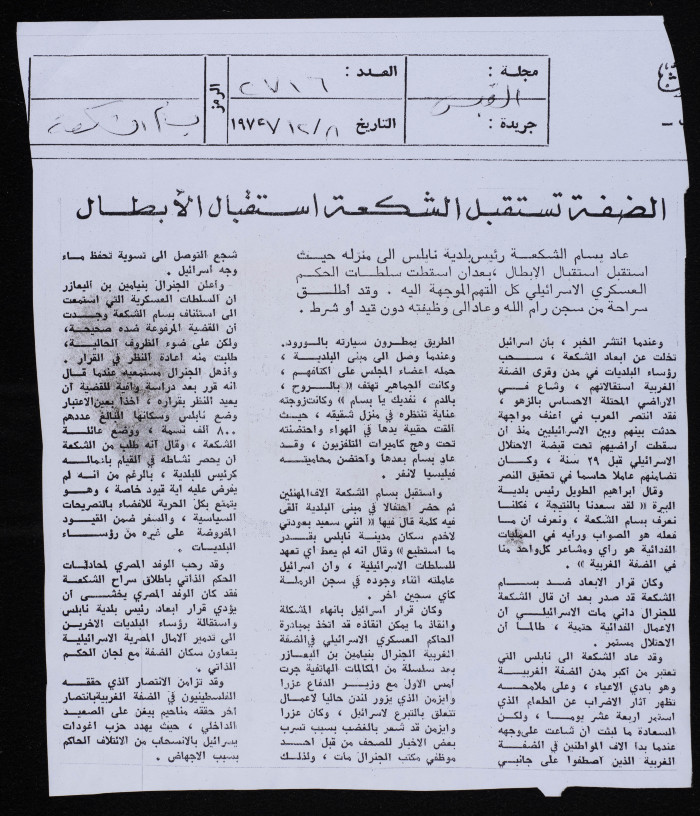 مجلة :
القبس
جريدة :
العدد :
٢٧١٦
التاريخ ١٩٧٧/١٢/٨
الرمز
بسام الشكعة
الضفة تستقبل الشكعة استقبال الأبطال
عاد بسام الشكعة رئيس بلدية نابلس الى منزله حيث
استقبل استقبال الابطال ،بعدان اسقطت سلطات الحكم
العسكري الاسرائيلي كل التهم الموجهة اليه . وقد اطلق
سراحة من سجن رام الله وعادالى وظيفته دون قيد أو شرط .
وعندما انتشر الخبر ، بأن اسرائيل
تخلت عن ابعاد الشكعة ، سحب
رؤساء البلديات في مدن وقرى الضفة
الغربية استقالاتهم ، وشاع في
الاراضي المحتلة الاحساس بالزهو ،
فقد انتصر العرب في أعنف مواجهة
حدثت بينهم وبين الاسرائيليين منذ أن
سقطت أراضيهم تحت قبضة الاحتلال
الاسرائيلي قبل ٢٩ سنة ، وكان
تضامنهم عاملا حاسما في تحقيق النصر
وقال ابراهيم الطويل رئيس بلدية
البيرة « لقد سعدنا بالنتيجة ، فكلنا
نعرف بسام الشكعة ، ونعرف ان ما
فعله هو الصواب ورأيه في العمليات
الفدائية هو رأي ومشاعر كل واحد منا
في الضفة الغربية » .
وكان قرار الابعاد ضد بسام
الشكعة قد صدر بعد ان قال الشكعة
للجنرال داني مات الاسرائيلي ان
الاعمال الفدائية حتمية ، طالما أن
الاحتلال مستمر .
وقد عاد الشكعة الى نابلس التي
تعتبر من أكبر مدن الضفة الغربية
وهو بادي الاعياء ، وعلى ملامحه
تظهر آثار الاضراب عن الطعام الذي
استمر اربعة عشر يوما ، ولكن
السعادة ما لبثت أن شاعت على وجهه
عندما بدأ آلاف المواطنين في الضفة
الغربية الذين اصطفوا على جانبي
الطريق يمطرون سيارته بالورود.
وعندما وصل الى مبنى البلدية ،
حمله أعضاء المجلس على أكتافهم ،
وكانت الجماهير تهتف « بالروح ،
بالدم ، نفديك يا بسام » وكانت زوجته
عناية تنتظره في منزل شقيقه ، حيث
القت حقيبة يدها في الهواء واحتضنته
تحت وهج كاميرات التلفزيون ، وقد
عاد بسام بعدها واحتضن محاميته
فيليسيا لانغر .
واستقبل بسام الشكعة آلاف المهنئين
ثم حضر احتفالا في مبنى البلدية القى
فيه كلمة قال فيها « انني سعيد بعودتي
لاخدم سكان مدينة نابلس بقدر
ما استطيع » وقال انه لم يعط أي تعهد
للسلطات الاسرائيلية ، وان اسرائيل
عاملته اثناء وجوده في سجن الرملة
كأي سجين آخر .
وكان قرار اسرائيل بانهاء المشكلة
وانقاذ ما يمكن انقاذه قد اتخذ بمبادرة
الحاكم العسكري الاسرائيلي في الضفة
الغربية الجنرال بنيامين بن اليعازر
بعد سلسلة من المكالمات الهاتفية جرت
أمس الاول مع وزير الدفاع عزرا
وايزمن الذي يزور لندن حاليا لاعمال
تتعلق بالتبرع لاسرائيل ، وكان عزرا
وايزمن قد شعر بالغضب بسبب تسرب
بعض الاخبار للصحف من قبل أحد
موظفي مكتب الجنرال مات ، ولذلك
شجع التوصل الى تسوية تحفظ ماء
وجه اسرائيل .
وأعلن الجنرال بنيامين بن اليعازر
ان السلطات العسكرية التي استمعت
الى استئناف بسام الشكعة وجدت
أن القضية المرفوعة ضده صحيحة،
ولكن على ضوء الظروف الحالية،
طلبت منه اعادة النظر في القرار .
وأذهل الجنرال مستمعيه عندما قال
انه قرر بعد دراسة وافية للقضية ان
يعيد النظر بقراره ، آخذا بعين الاعتبار
وضع نابلس وسكانها البالغ عددهم
٨٠٠ الف نسمة ، ووضع عائلة
الشكعة ، وقال انه طلب من الشكعة
ان يحصر نشاطه في القيام بأعماله
كرئيس للبلدية ، بالرغم من انه لم
يفرض عليه اية قيود خاصة ، وهو
يتمتع بكل الحرية للافضاء بالتصريحات
السياسية ، والسفر ضمن القيود
المفروضة على غيره من رؤساء
البلديات .
وقد رحب الوفد المصري لمحادثات
الحكم الذاتي باطلاق سراح الشكعة
فقد كان الوفد المصري يخشى ان
يؤدي قرار ابعاد رئيس بلدية نابلس
واستقالة رؤساء البلديات الآخرين
الى تدمير الآمال المصرية الاسرائيلية
بتعاون سكان الضفة مع لجان الحكم
الذاتي .
وقد تزامن الانتصار الذي حققه
الفلسطينيون في الضفة الغربية بانتصار
آخر حققه مناحيم بيغن على الصعيد
الداخلي ، حيث يهدد حزب اغودات
يسرائيل بالانسحاب من الائتلاف الحاكم
بسبب الاجهاض .